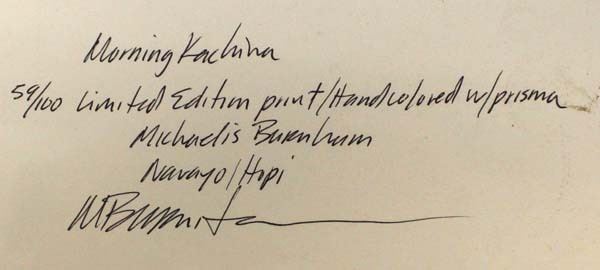 Morning Kachina
59/100 Limited Edition print/Handcolored w/prisma
Michaelis Burnham
Navajo/Hopi
MBurn